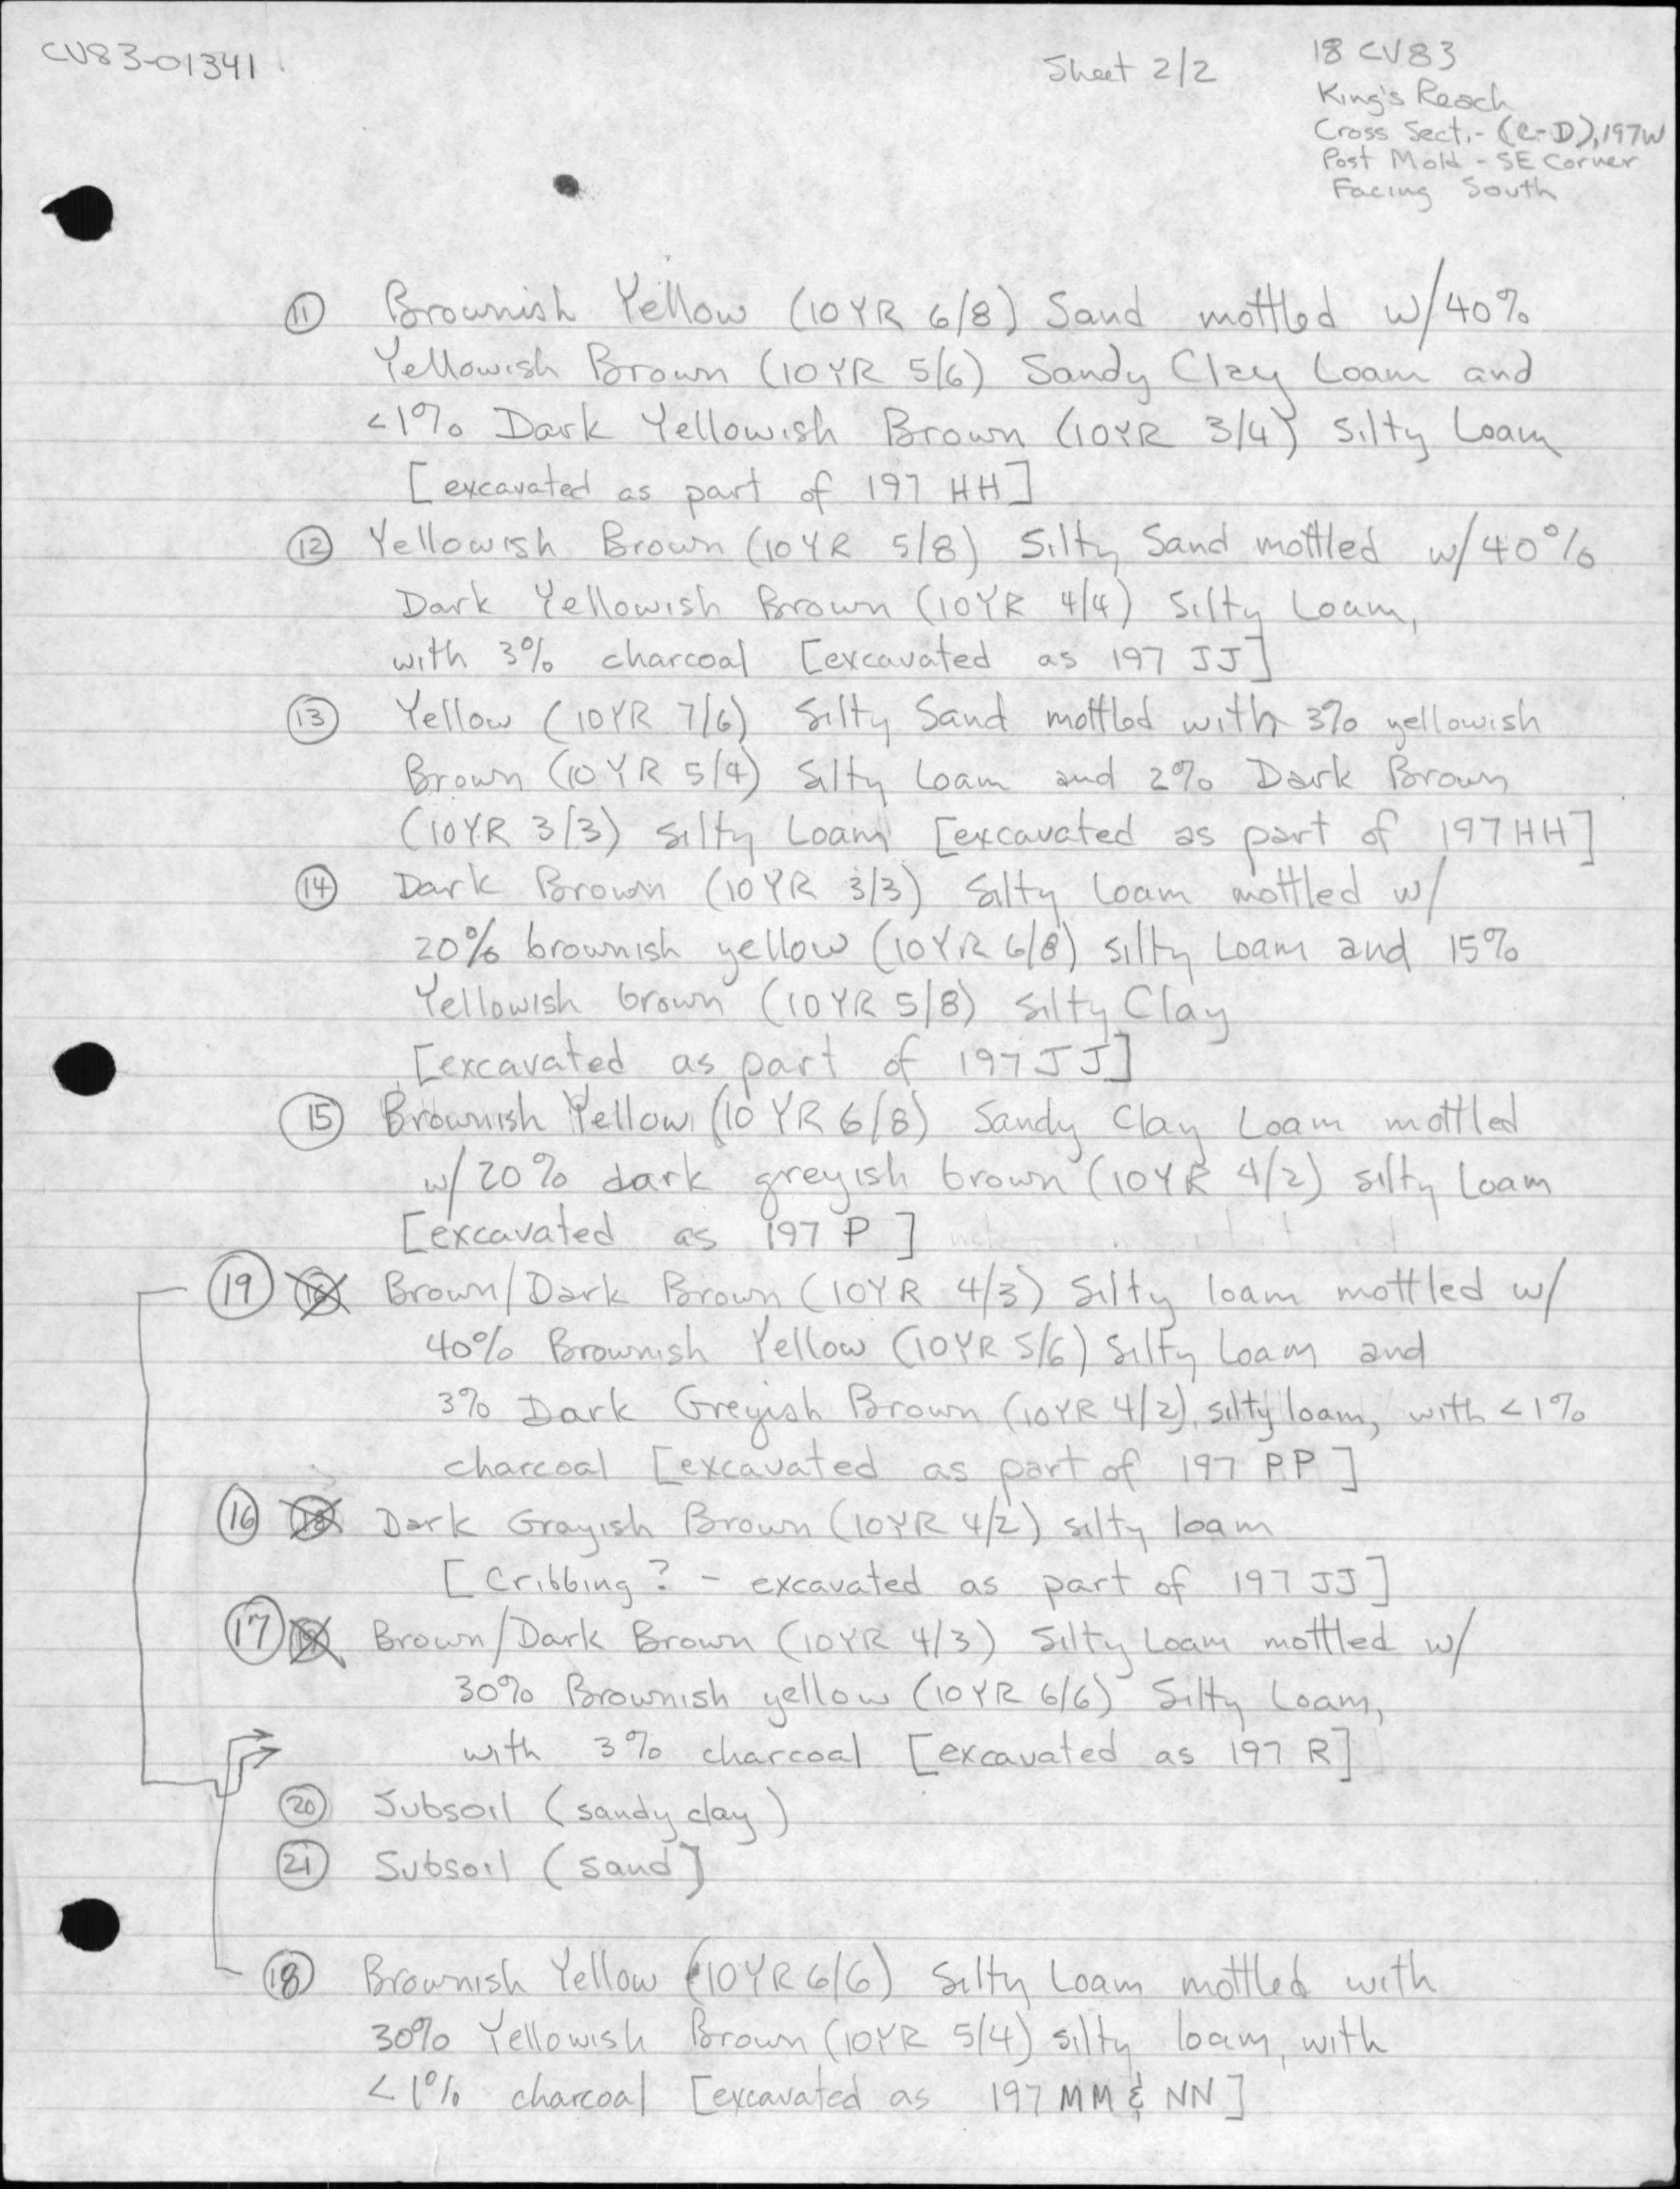 CV83-01341
Sheet 2/2
18 CV83
King's Reach
Cross Sect.- (C-D), 197W
Post Mold - SE Corner
Facing South
11 Brownish Yellow (10YR 6/8) Sand mottled w/40%
Yellowish Brown (10YR 5/6) Sandy Clay Loam and
<1% Dark Yellowish Brown (10YR 3/4) Silty Loam
[excavated as part of 197 HH]
12 Yellowish Brown (10YR 5/8) Silty Sand mottled w/40%
Dark Yellowish Brown (10YR 4/4) Silty Loam,
with 3% charcoal [excavated as 197 JJ]
13 Yellow (10YR 7/6) Silty Sand mottled with 3% yellowish
Brown (10YR 5/4) Silty Loam and 2% Dark Brown
(10YR 3/3) Silty Loam [excavated as part of 197HH]
14 Dark Brown (10YR 3/3) Silty Loam mottled w/
20% brownish yellow (10YR 6/8) silty Loam and 15%
Yellowish brown (10YR 5/8) Silty Clay
[excavated as part of 197JJ]
15 Brownish Yellow (10YR 6/8) Sandy Clay Loam mottled
w/20% dark greyish brown (10YR 4/2) silty Loam
[excavated as 197 P]
19 Brown/Dark Brown (10YR 4/3) Silty loam mottled w/
40% Brownish Yellow (10YR 5/6) Silty Loam and
3% Dark Greyish Brown (10YR 4/2) silty loam, with <1%
charcoal [excavated as part of 197 PP]
16 Dark Grayish Brown (10YR 4/2) silty loam
[Cribbing? - excavated as part of 197 JJ]
17 Brown/Dark Brown (10YR 4/3) Silty Loam mottled w/
30% Brownish yellow (10YR 6/6) Silty Loam,
with 3% charcoal [excavated as 197 R]
20 Subsoil (sandy clay)
21 Subsoil (sand]
18 Brownish Yellow (10YR 6/6) Silty Loam mottled with
30% Yellowish Brown (10YR 5/4) silty loam, with
<1% charcoal [excavated as 197 MM & NN]